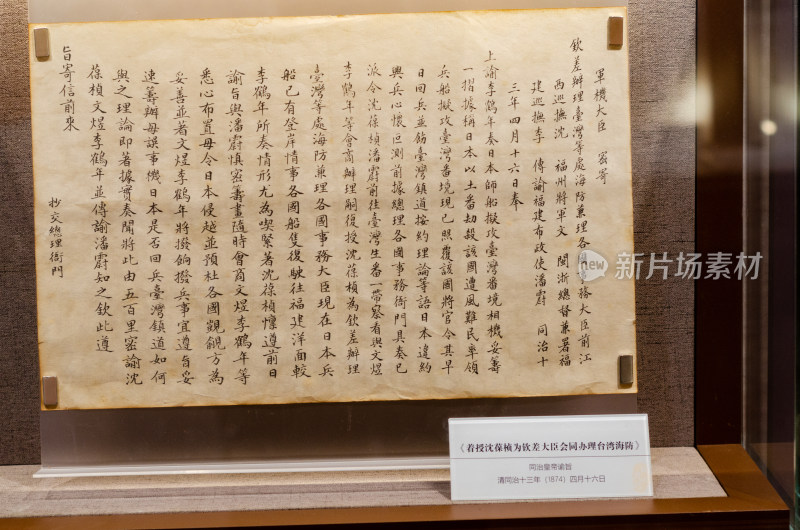 軍機大臣 密寄
欽差辦理臺灣等處海防兼理各國事務大臣前江
西巡撫沈 福州將軍文 閩浙總督兼署福
建巡撫李 傳諭福建布政使潘霨 同治十
三年四月十六日奉
上諭李鶴年奏日本師船擬攻臺灣番境相機妥籌
一摺據稱日本以土番刦殺該國遭風難民率領
兵船擬攻臺灣番境現已照覆該國將官令其早
日回兵並飭臺灣鎮道按約理論等語日本違約
興兵心懷叵測前據總理各國事務衙門具奏已
派令沈葆楨潘霨前往臺灣生番一帶察看與文煜
李鶴年等會商辦理嗣復授沈葆楨為欽差辦理
臺灣等處海防兼理各國事務大臣現在日本兵
船已有登岸情事各國船隻復駛往福建洋面較
李鶴年所奏情形尤為喫緊著沈葆楨懍遵前日
諭旨與潘霨慎密籌畫隨時會商文煜李鶴年等
悉心布置毋令日本侵越並預杜各國覬覦方為
妥善並著文煜李鶴年將撥餉撥兵事宜遵旨妥
速籌辦毋誤事機日本是否回兵臺灣鎮道如何
與之理論即著據實奏聞將此由五百里密諭沈
葆楨文煜李鶴年並傳諭潘霨知之欽此遵
旨寄信前來
抄交總理衙門
《着授沈葆桢为钦差大臣会同办理台湾海防》
同治皇帝谕旨
清同治十三年（1874）四月十六日
新浪图片